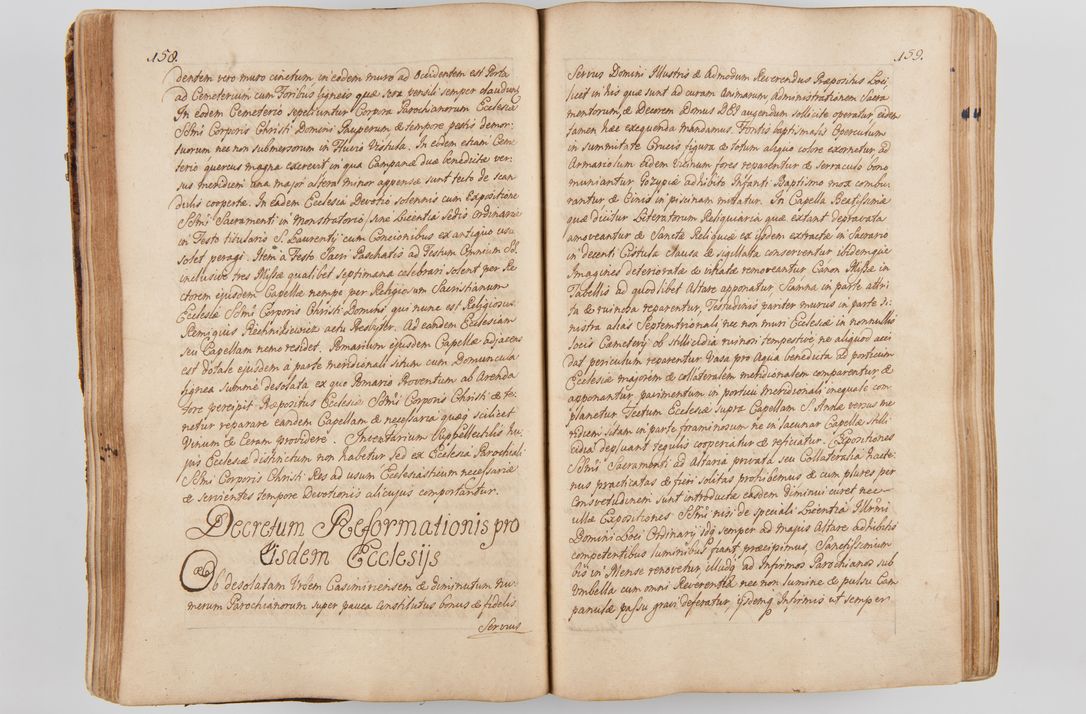 158.
dentem vero muro cinctum in eodem muro ad Occidentem est Porta
ad Cemeterium cum Foribus ligneis quæ sera pensili semper clauduntur
In eodem Cemeterio sepeliuntur Corpora Parochianorum Ecclesiæ
SSmi Corporis Christi Domini Pauperum & tempore pestis demor-
tuorum nec non submersorum in Fluvio Vistula. In eodem etiam Ceme
terio quercus magna excrevit in qua Campanæ duæ benedictæ ver-
sus meridiem una major altera minor appensæ sunt tecto de scan
dulis coopertæ. In eadem Ecclesia Devotio solennis cum Expositione
SSmi Sacramenti in Monstratorio sine Licentia Sedis Ordinariæ
in Festo titulario S. Laurentij cum Concionibus ex antiquo usu
solet peragi. Item a Festo Sacri Paschatis ad Festum Omnium SS.
inclusive tres Missæ qualibet Septimana celebrari solent per Re
ctorem ejusdem Capellæ nempe per Religiosum Sacristianum
Ecclesiæ SSmi Corporis Christi Domini qui nunc est Religiosus
Remigius Piechnikiewicz actu Presbyter. Ad eandem Ecclesiam
seu Capellam nemo residet. Pomarium ejusdem Capellæ adjacens
est dotale ejusdem à parte meridionali situm cum Domuncula
lignea summe desolata ex quo Pomario Proventum ab Arenda
tore percipit Præpositus Ecclesiæ SSmi Corporis Christi & te-
netur reparare eandem Capellam & necessaria quæq scilicet
Vinum & Ceram providere. Inventarium Suppellectilis hu-
jus Ecclesiæ distinctum non habetur sed ex Ecclesia Parochiali
SSmi Corporis Christi Res ad usum Ecclesiasticum necessariæ
& servientes tempore Devotionis alicujus comportantur.
Decretum Reformationis pro
Eisdem Ecclesijs
Ob desolatam Urbem Casimiriensem & diminutum nu-
merum Parochianorum super pauca Constitutus bonus & fidelis
Servus
159.
Servus Domini Illustris & Admodum Reverendus Præpositus Loci
licet in his quæ sunt ad curam Animarum, Administrationem Sacra
mentorum, & Decorem Domus DEI augendum sollicite operatur eidem
tamen hæc exequenda mandamus. Fontis baptismalis Operculum
in summitate Crucis figura & totum aliquo colore exornetur ad
Armariolum eidem vicinum fores reparentur & serraculo bono
muniantur Gozypia adhibita Infanti Baptismo mox combu-
rantur & Cinis in piscinam mittatur. In Capella Beatissimæ
quæ dicitur Literatorum Reliquiaria quæ extant depravata
amoveantur & Sanctæ Reliquiæ ex ijsdem extractæ in Sacrario
in decenti Cistula clausa & sigillata conserventur ibidemque
Imagines deterioratæ & vitiatæ removeantur Canon Missæ in
Tabellis ad quodlibet Altare apponatur Scamna in parte attri-
ta & ruinosa reparentur, Testudinis pariter murus in parte si-
nistra alias Septemtrionali, nec non muri Ecclesiæ in nonnullis
locis Cemetery ob stillicidia ruinosi tempestive, ne aliquod acci
dat periculum reparentur Vasa pro Aqua benedicta ad porticum
Ecclesiæ majorem & collateralem meridionalem comparentur &
apponantur pavimentum in porticu Meridionali inæquale com
planetur Tectum Ecclesiæ supra Capellam S. Annæ versus me
ridiem sitam in parte foraminosum ne in lacunar Capellæ stilli-
cidia depluant tegulis cooperiatur & reficiatur. Expositiones
SSmi Sacramenti ad Altaria privata seu Collateralia hacte-
nus practicatas & fieri solitas prohibemus & cum plures per
Consvetudinem sunt introductæ easdem diminui curet nec
ullæ Expositiones SSmi nisi de speciali Licentia Illrmi
Domini Loci Ordinarij idq semper ad majus Altare adhibitis
competentibus luminibus fiant præcipimus, Sanctissimum
bis in Mense renovetur, illudq ad Infirmos Parochianos sub
Umbella cum omni Reverentia nec non lumine & pulsu Cam
panulæ passu gravi deferatur, ijsdemq Infirmis ut semper